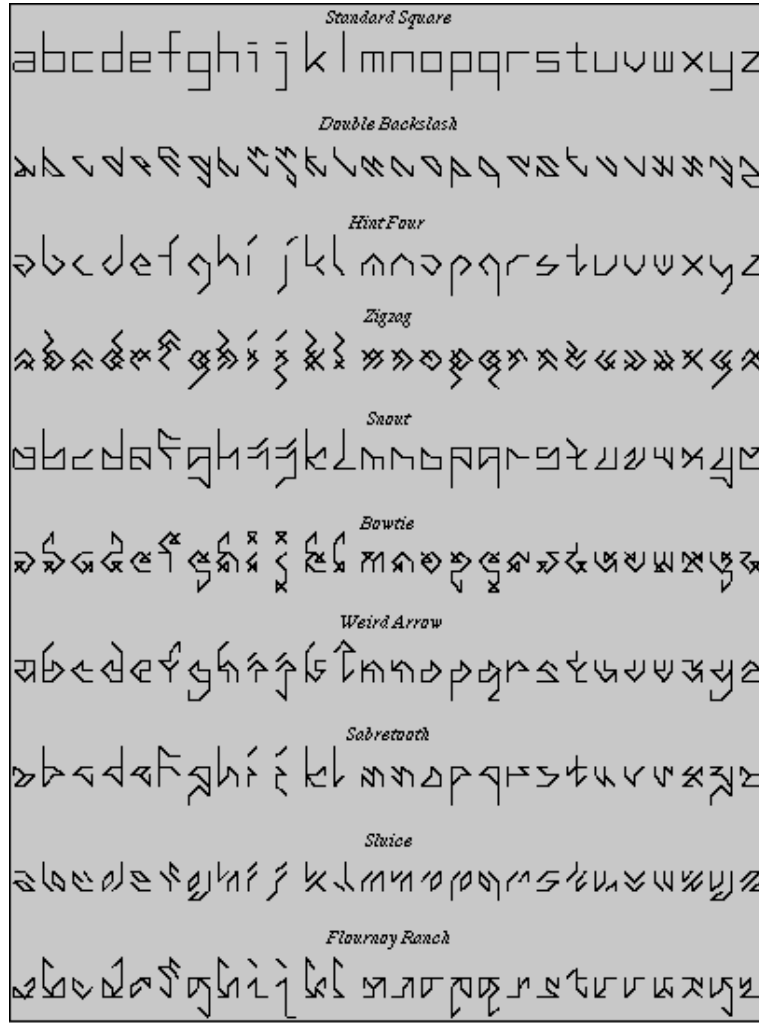 Standard Square
abcdefghijklmnopqrstuvwxyz
Double Backslash
abcdefghijklmnopqrstuvwxyz
Hint Four
abcdefghijklmnopqrstuvwxyz
Zigzag
abcdefghijklmnopqrstuvwxyz
Snout
abcdefghijklmnopqrstuvwxyz
Bowtie
abcdefghijklmnopqrstuvwxyz
Weird Arrow
abcdefghijklmnopqrstuvwxyz
Sabretooth
abcdefghijklmnopqrstuvwxyz
Sluice
abcdefghijklmnopqrstuvwxyz
Flournoy Ranch
abcdefghijklmnopqrstuvwxyz